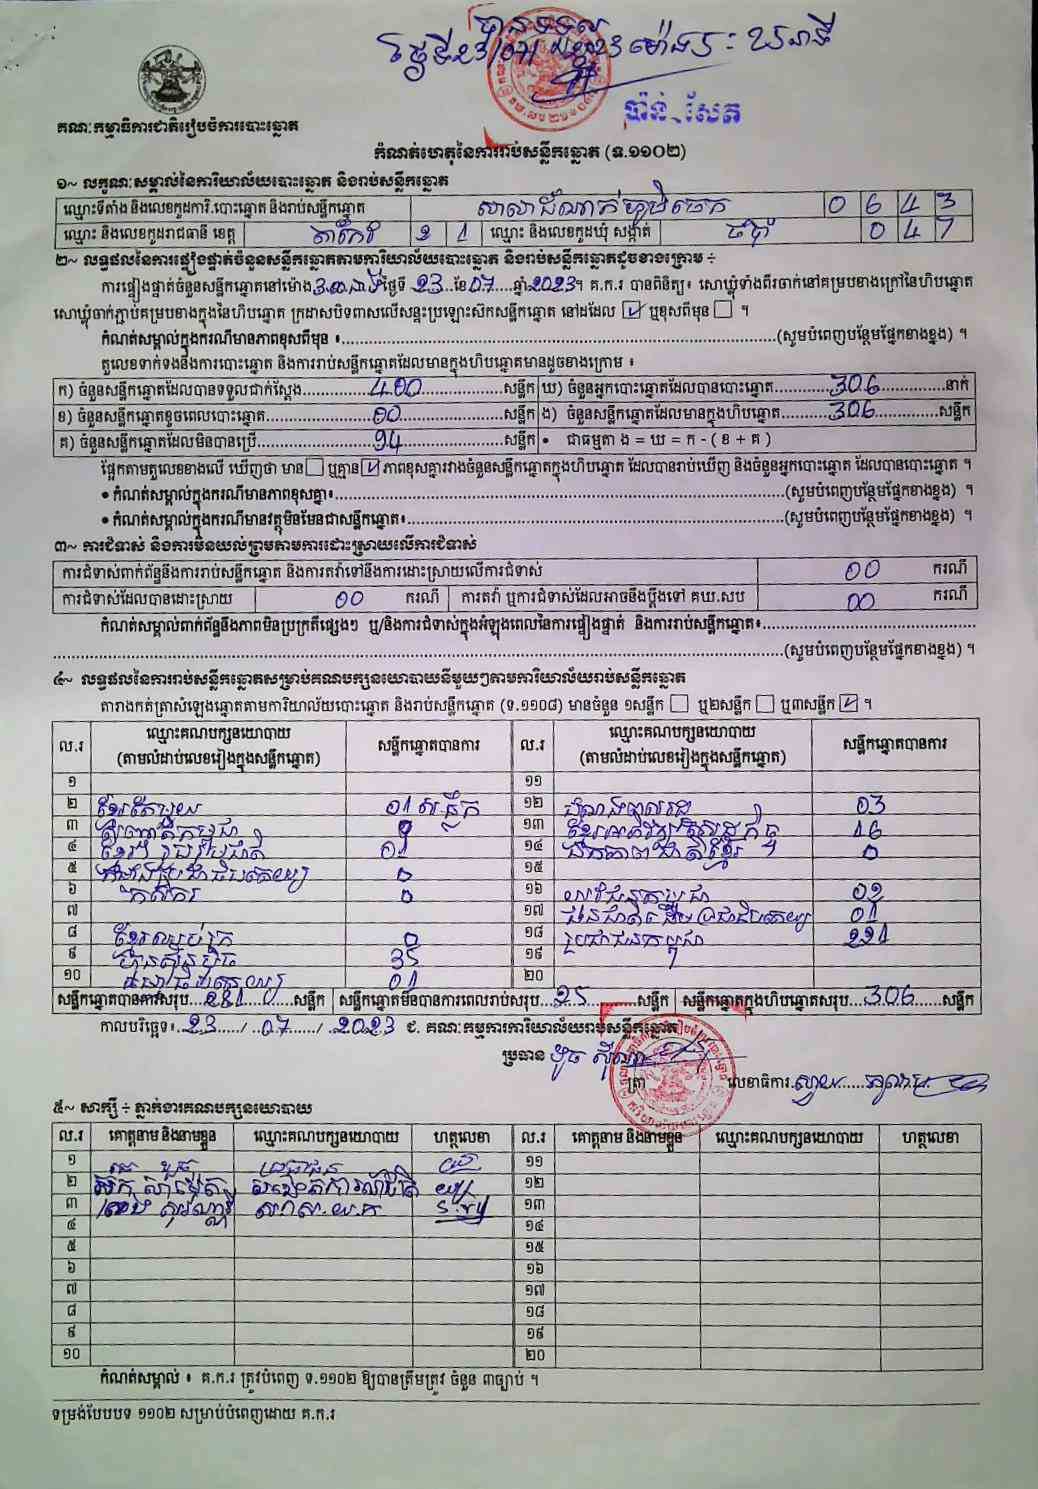 បានទទួល
ថ្ងៃទី23/07/2023 ម៉ោង
ប៉ាន់ សែត
គណៈកម្មាធិការជាតិរៀបចំការបោះឆ្នោត
កំណត់ហេតុនៃការរាប់សន្លឹកឆ្នោត (ទ.១១០២)
១~ លក្ខណៈសម្គាល់នៃការិយាល័យបោះឆ្នោត និងរាប់សន្លឹកឆ្នោត
ឈ្មោះទីតាំង និងលេខកូដការិ.បោះឆ្នោត និងរាប់សន្លឹកឆ្នោត សាលាដំណាក់ភូមិចេក 0 6 4 3
ឈ្មោះ និងលេខកូដរាជធានី ខេត្ត តាកែវ 2 1 ឈ្មោះ និងលេខកូដឃុំ សង្កាត់ 0 4 7
២~ លទ្ធផលនៃការផ្ទៀងផ្ទាត់ចំនួនសន្លឹកឆ្នោតតាមការិយាល័យបោះឆ្នោត និងរាប់សន្លឹកឆ្នោតដូចខាងក្រោម ÷
ការផ្ទៀងផ្ទាត់ចំនួនសន្លឹកឆ្នោតនៅម៉ោង ថ្ងៃទី 23 ខែ 07 ឆ្នាំ 2023 ។ គ.ក.រ បានពិនិត្យ៖ សោឃ្លុំទាំងពីរចាក់នៅគម្របខាងក្រៅនៃហិបឆ្នោត
សោឃ្លុំចាក់ភ្ជាប់គម្របខាងក្នុងនៃហិបឆ្នោត ក្រដាសបិទពាសលើសន្ទះប្រឡោះស៊កសន្លឹកឆ្នោត នៅដដែល ☑ ឬខុសពីមុន ☐ ។
កំណត់សម្គាល់ក្នុងករណីមានភាពខុសពីមុន ៖ (សូមបំពេញបន្ថែមផ្នែកខាងខ្នង) ។
តួលេខទាក់ទងនឹងការបោះឆ្នោត និងការរាប់សន្លឹកឆ្នោតដែលមានក្នុងហិបឆ្នោតមានដូចខាងក្រោម ៖
ក) ចំនួនសន្លឹកឆ្នោតដែលបានទទួលជាក់ស្តែង 400 សន្លឹក ឃ) ចំនួនអ្នកបោះឆ្នោតដែលបានបោះឆ្នោត 306 នាក់
ខ) ចំនួនសន្លឹកឆ្នោតខូចពេលបោះឆ្នោត 00 សន្លឹក ង) ចំនួនសន្លឹកឆ្នោតដែលមានក្នុងហិបឆ្នោត 306 សន្លឹក
គ) ចំនួនសន្លឹកឆ្នោតដែលមិនបានប្រើ 94 សន្លឹក • ជាធម្មតា ង = ឃ = ក - ( ខ + គ )
ផ្អែកតាមតួលេខខាងលើ ឃើញថា មាន ☐ ឬគ្មាន ☑ ភាពខុសគ្នារវាងចំនួនសន្លឹកឆ្នោតក្នុងហិបឆ្នោត ដែលបានរាប់ឃើញ និងចំនួនអ្នកបោះឆ្នោត ដែលបានបោះឆ្នោត ។
• កំណត់សម្គាល់ក្នុងករណីមានភាពខុសគ្នា៖ (សូមបំពេញបន្ថែមផ្នែកខាងខ្នង) ។
• កំណត់សម្គាល់ក្នុងករណីមានវត្ថុមិនមែនជាសន្លឹកឆ្នោត៖ (សូមបំពេញបន្ថែមផ្នែកខាងខ្នង) ។
៣~ ការជំទាស់ និងការមិនយល់ព្រមតាមការដោះស្រាយលើការជំទាស់
ការជំទាស់ពាក់ព័ន្ធនឹងការរាប់សន្លឹកឆ្នោត និងការតវ៉ាទៅនឹងការដោះស្រាយលើការជំទាស់ 00 ករណី
ការជំទាស់ដែលបានដោះស្រាយ 00 ករណី ការតវ៉ា ឬការជំទាស់ដែលអាចនឹងប្តឹងទៅ គឃ.សប 00 ករណី
កំណត់សម្គាល់ពាក់ព័ន្ធនឹងភាពមិនប្រក្រតីផ្សេងៗ ឬ/និងការជំទាស់ក្នុងអំឡុងពេលនៃការផ្ទៀងផ្ទាត់ និងការរាប់សន្លឹកឆ្នោត៖
(សូមបំពេញបន្ថែមផ្នែកខាងខ្នង) ។
៤~ លទ្ធផលនៃការរាប់សន្លឹកឆ្នោតសម្រាប់គណបក្សនយោបាយនីមួយៗតាមការិយាល័យរាប់សន្លឹកឆ្នោត
តារាងកត់ត្រាសំឡេងឆ្នោតតាមការិយាល័យបោះឆ្នោត និងរាប់សន្លឹកឆ្នោត (ទ.១១០៨) មានចំនួន ១សន្លឹក ☐ ឬ២សន្លឹក ☐ ឬ៣សន្លឹក ☑ ។
ល.រ ឈ្មោះគណបក្សនយោបាយ (តាមលំដាប់លេខរៀងក្នុងសន្លឹកឆ្នោត) សន្លឹកឆ្នោតបានការ ល.រ ឈ្មោះគណបក្សនយោបាយ (តាមលំដាប់លេខរៀងក្នុងសន្លឹកឆ្នោត) សន្លឹកឆ្នោតបានការ
១ ១១
២ ខ្មែរតែមួយ 01 សន្លឹក ១២ 03
៣ 0 ១៣ ខ្មែរអភិវឌ្ឍន៍សេដ្ឋកិច្ច 16
៤ ខ្មែររួបរួមជាតិ 01 ១៤ ឯកភាពជាតិខ្មែរ 0
៥ 0 ១៥
៦ កសិករ 0 ១៦ យុវជនកម្ពុជា 02
៧ ១៧ ជនជាតិដើមប្រជាធិបតេយ្យ 01
៨ ខ្មែរឈប់ក្រ 0 ១៨ ប្រជាជនកម្ពុជា 221
៩ ហ៊្វុនស៊ិនប៉ិច 35 ១៩
១០ 01 ២០
សន្លឹកឆ្នោតបានការសរុប 281 សន្លឹក សន្លឹកឆ្នោតមិនបានការពេលរាប់សរុប 25 សន្លឹក សន្លឹកឆ្នោតក្នុងហិបឆ្នោតសរុប 306 សន្លឹក
កាលបរិច្ឆេទ៖ 23 / 07 / 2023 ជ. គណៈកម្មការការិយាល័យរាប់សន្លឹកឆ្នោត
ប្រធាន
ត្រា លេខាធិការ
៥~ សាក្សី ÷ ភ្នាក់ងារគណបក្សនយោបាយ
ល.រ គោត្តនាម និងនាមខ្លួន ឈ្មោះគណបក្សនយោបាយ ហត្ថលេខា ល.រ គោត្តនាម និងនាមខ្លួន ឈ្មោះគណបក្សនយោបាយ ហត្ថលេខា
១ ប្រជាជន ១១
២ ១២
៣ ស.ស.យ.ក ១៣
៤ ១៤
៥ ១៥
៦ ១៦
៧ ១៧
៨ ១៨
៩ ១៩
១០ ២០
កំណត់សម្គាល់ ៖ គ.ក.រ ត្រូវបំពេញ ទ.១១០២ ឱ្យបានត្រឹមត្រូវ ចំនួន ៣ច្បាប់ ។
ទម្រង់បែបបទ ១១០២ សម្រាប់បំពេញដោយ គ.ក.រ